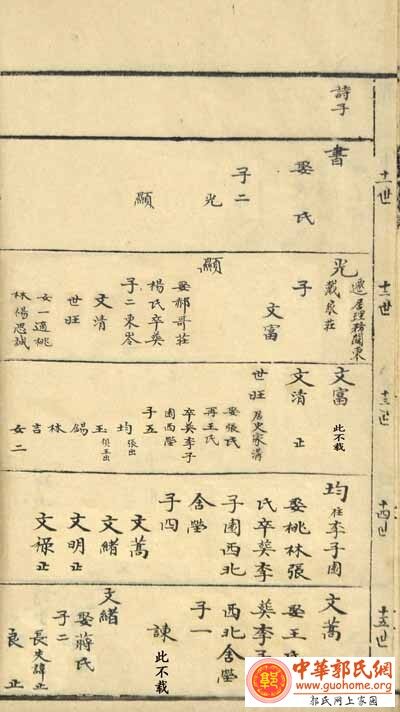 詩子
十一世
書
娶氏
子二
光
顯
十二世
光
遷居理務關東
戴家莊
子
文富
顯
娶郝哥莊
楊氏卒葬
子二東岺
文清
世旺
女一適桃
林楊思誠
十三世
文富
此不載
文清 正
世旺
居史家溝
娶張氏
再王氏
卒葬李子
園西塋
子五
均 張出
玉 俱王出
錫
林
言
女二
十四世
均 住李子園
娶桃林張
氏卒葬李
子園西北
舍塋
子四
文蒿
文緒 正
文明 正
文祿 正
十五世
文蒿
娶王氏
葬李子
西北舍塋
子一
諫
此不载
文緒
娶蔣氏
子二
良 正
中華郭氏網
www.guohome.org
郭氏网上家園